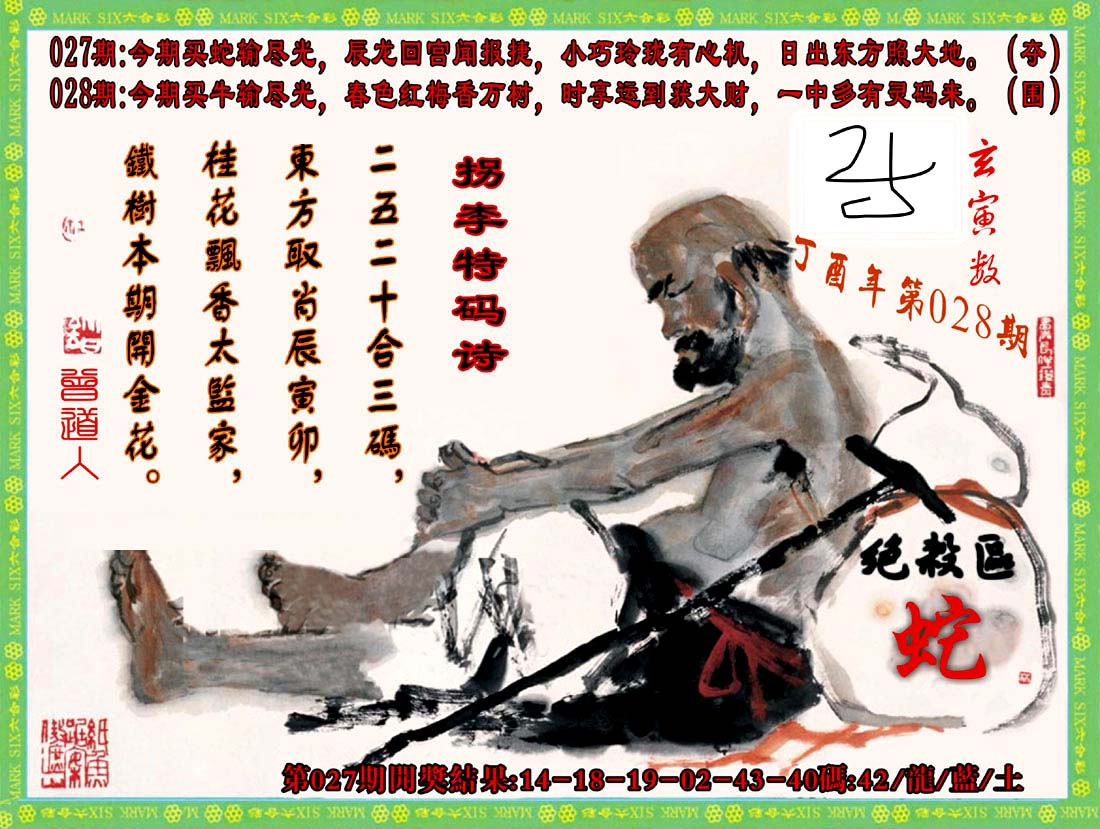 MARK SIX六合彩
027期:今期买蛇输尽光，辰龙回宫闻报捷，小巧玲珑有心机，日出东方照大地。(夯)
028期:今期买牛输尽光，春色红梅香万树，时享运到获大财，一中多有灵码来。(围)
玄寅数
丁酉年第028期
拐李特码诗
二五二十合三碼，
東方取肖辰寅卯，
桂花飄香太監家，
鐵樹本期開金花。
曾道人
绝殺區
蛇
第027期開獎結果:14-18-19-02-43-40碼:42/龍/藍/土